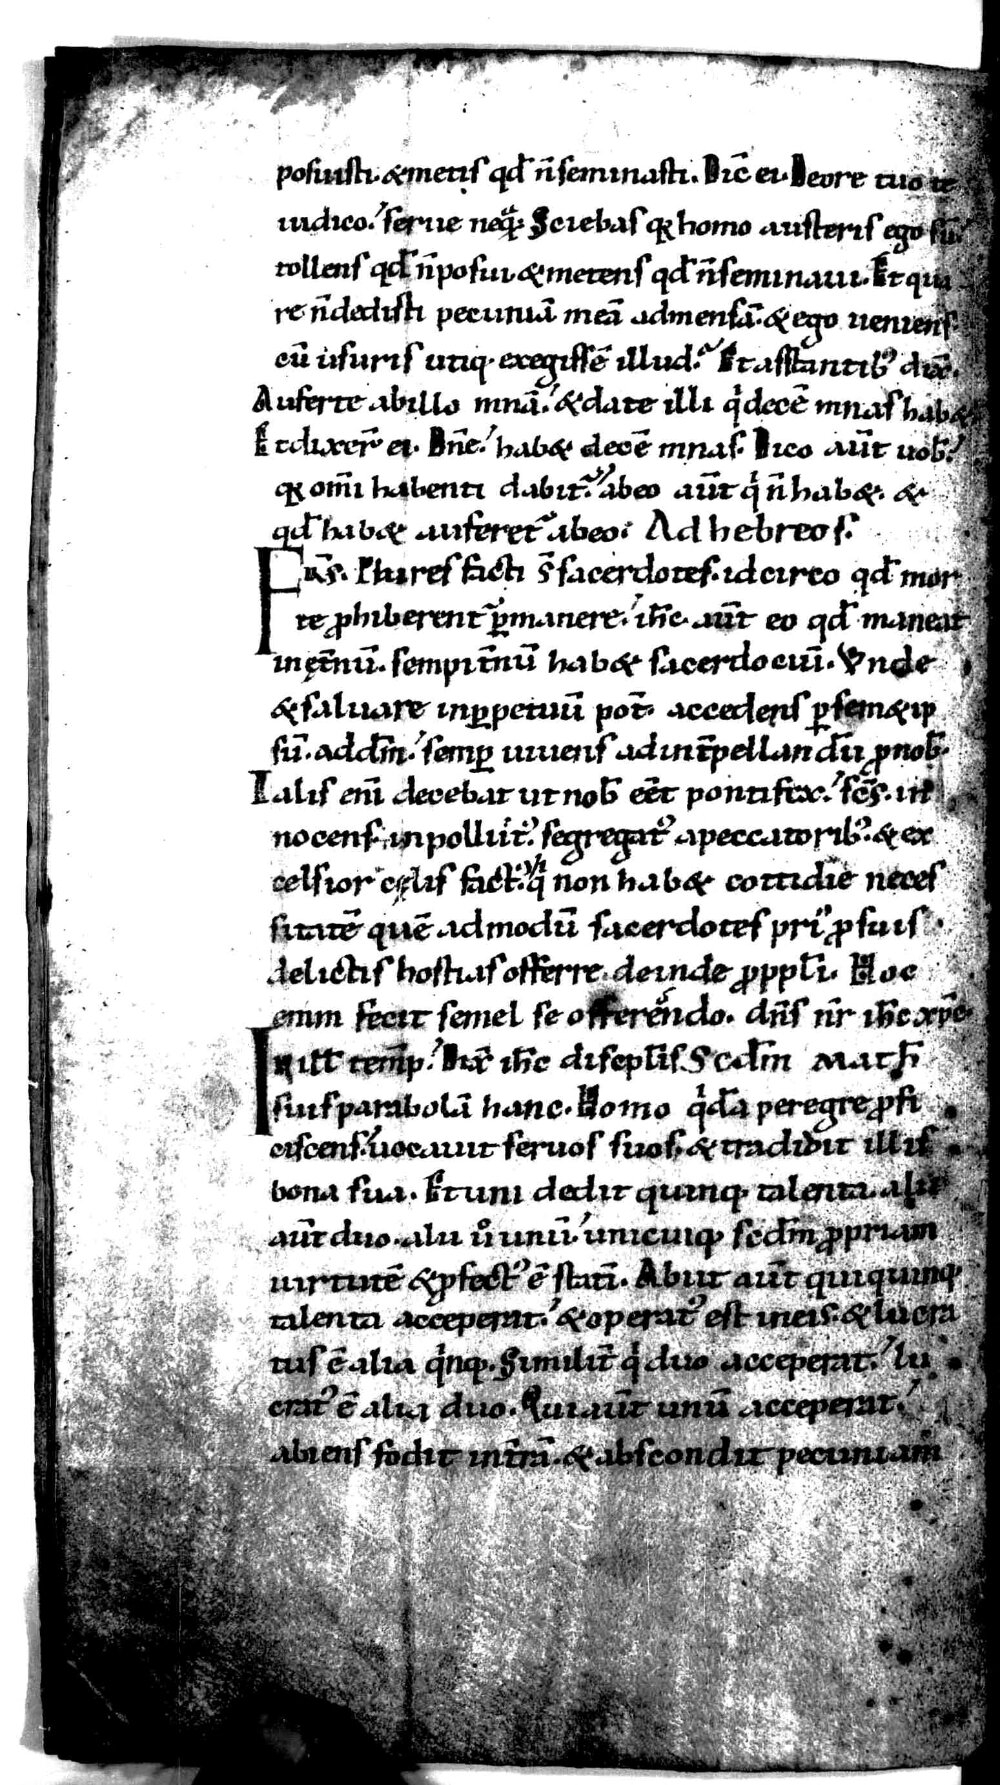 posuisti. & metis qd̄ n̄ seminasti. Dic̄ ei. De ore tuo te
iudico. serue neq̄. Sciebas qꝛ homo austeris ego sū.
tollens qd̄ n̄ posui. & metens qd̄ n̄ seminaui. Et qua
re n̄ dedisti pecuniā meā ad mensā. & ego ueniens
cū usuris utiq. exegissē illud. Et astantib; dix̄.
Auferte ab illo mnā. & date illi qͥ decē mnas hab&
Et dixer̄ ei. Dn̄e. hab& decē mnas. Dico aūt uob̄.
qꝛ om̄i habenti dabit᷑. ab eo aūt qͥ n̄ hab&. &
qd̄ hab& auferet᷑ ab eo. Ad hebreos.
FRS̄. Plures facti s̄ sacerdotes. idcirco qd̄ mor
te ꝓhiberent᷑ ꝑmanere. ih̄c aūt eo qd̄ maneat
in ęt̄nū. sempit̄nū hab& sacerdociū. Vnde
& saluare in ꝑpetuū pot̄. accedens ꝑ sem&ip
sū. ad dm̄. semꝑ uiuens ad int̄pellandū ꝓ nob̄.
Talis eni decebat ut nob̄ eēt pontifex. sc̄s. in
nocens. inpollut᷒. segregat᷒ a peccatorib;. & ex
celsior cęlis fact᷒. qͥ non hab& cottidie neces
sitatē quē admodū sacerdotes pri᷒ ꝓ suis
delictis hostias offerre. deinde ꝓ ppl̄i. Hoc
enim fecit semel se offerendo. dn̄s nr̄ ih̄c xp̄c.
IN ill̄ temp̄. Dix̄ ih̄c discipl̄is Scdm̄ Math̄
suis parabolā hanc. Homo qͥdā peregre ꝓfi
ciscens. uocauit seruos suos. & tradidit illis
bona sua. Et uni dedit quinq. talenta. alii
aūt duo. alii ů unū. unicuiq. scdm̄ ꝓpriam
uirtutē & ꝓfect᷒ ē statī. Abiit aūt qui quinq.
talenta acceperat. & operat᷒ est in eis. & lucra
tus ē alia qͥnq. Similit̄ qͥ duo acceperat. lu
crat᷒ ē alia duo. Qui aūt unū acceperat.
abiens fodit in t̄rā. & abscondit pecuniam